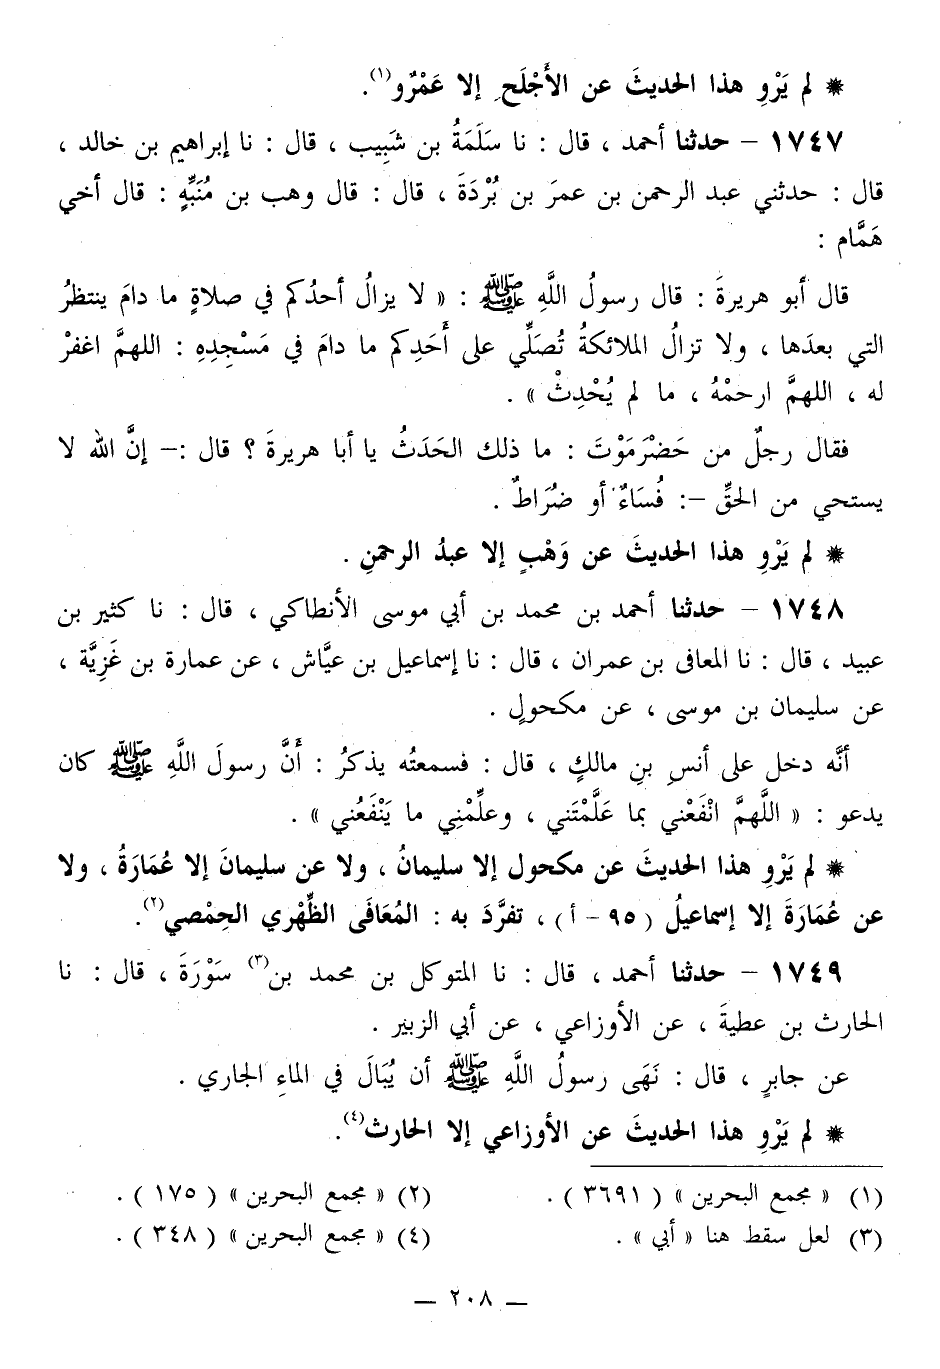 * لم يَرْوِ هذا الحديثَ عن الأَجْلَحِ إلا عَمْرٌو(١).
١٧٤٧ – حدثنا أحمد ، قال : نا سَلَمَةُ بن شَبِيب ، قال : نا إبراهيم بن خالد ،
قال : حدثني عبد الرحمن بن عمرَ بن بُرْدَةَ ، قال : قال وهب بن مُنَبِّهٍ : قال أخي
هَمَّام :
قال أبو هريرةَ : قال رسولُ اللَّهِ ﷺ : « لا يزالُ أحدُكم في صلاةٍ ما دامَ ينتظرُ
التي بعدَها ، ولا تزالُ الملائكةُ تُصَلِّي على أَحَدِكم ما دامَ في مَسْجِدِهِ : اللهمَّ اغفرْ
له ، اللهمَّ ارحمْهُ ، ما لم يُحْدِثْ » .
فقال رجلٌ من حَضْرَمَوْتَ : ما ذلك الحَدَثُ يا أبا هريرةَ ؟ قال :– إنَّ الله لا
يستحي من الحقِّ –: فُسَاءٌ أو ضُرَاطٌ .
* لم يَرْوِ هذا الحديثَ عن وَهْبٍ إلا عبدُ الرحمنِ .
١٧٤٨ – حدثنا أحمد بن محمد بن أبي موسى الأنطاكي ، قال : نا كثير بن
عبيد ، قال : نا المعافى بن عمران ، قال : نا إسماعيل بن عيَّاش ، عن عمارة بن غَزِيَّة ،
عن سليمان بن موسى ، عن مكحولٍ .
أنَّه دخل على أنسِ بنِ مالكٍ ، قال : فسمعتُه يذكرُ : أَنَّ رسولَ اللَّهِ ﷺ كان
يدعو : « اللَّهمَّ انْفَعْني بما عَلَّمْتَني ، وعلِّمْنِي ما يَنْفَعُني » .
* لم يَرْوِ هذا الحديثَ عن مكحول إلا سليمانُ ، ولا عن سليمانَ إلا عُمَارَةُ ، ولا
عن عُمَارَةَ إلا إسماعيلُ ( ٩٥ – أ ) ، تفرَّدَ به : المُعَافَى الظِّهْري الحِمْصي(٢).
١٧٤٩ – حدثنا أحمد ، قال : نا المتوكل بن محمد بن(٣) سَوْرَةَ ، قال : نا
الحارث بن عطيةَ ، عن الأوزاعي ، عن أبي الزبير .
عن جابرٍ ، قال : نَهَى رسولُ اللَّهِ ﷺ أن يُبَالَ في الماءِ الجاري .
* لم يَرْوِ هذا الحديثَ عن الأوزاعي إلا الحارث(٤).
(١) « مجمع البحرين » ( ٣٦٩١ ) .
(٢) « مجمع البحرين » ( ١٧٥ ) .
(٣) لعل سقط هنا « أبي » .
(٤) « مجمع البحرين » ( ٣٤٨ ) .
– ٢٠٨ –